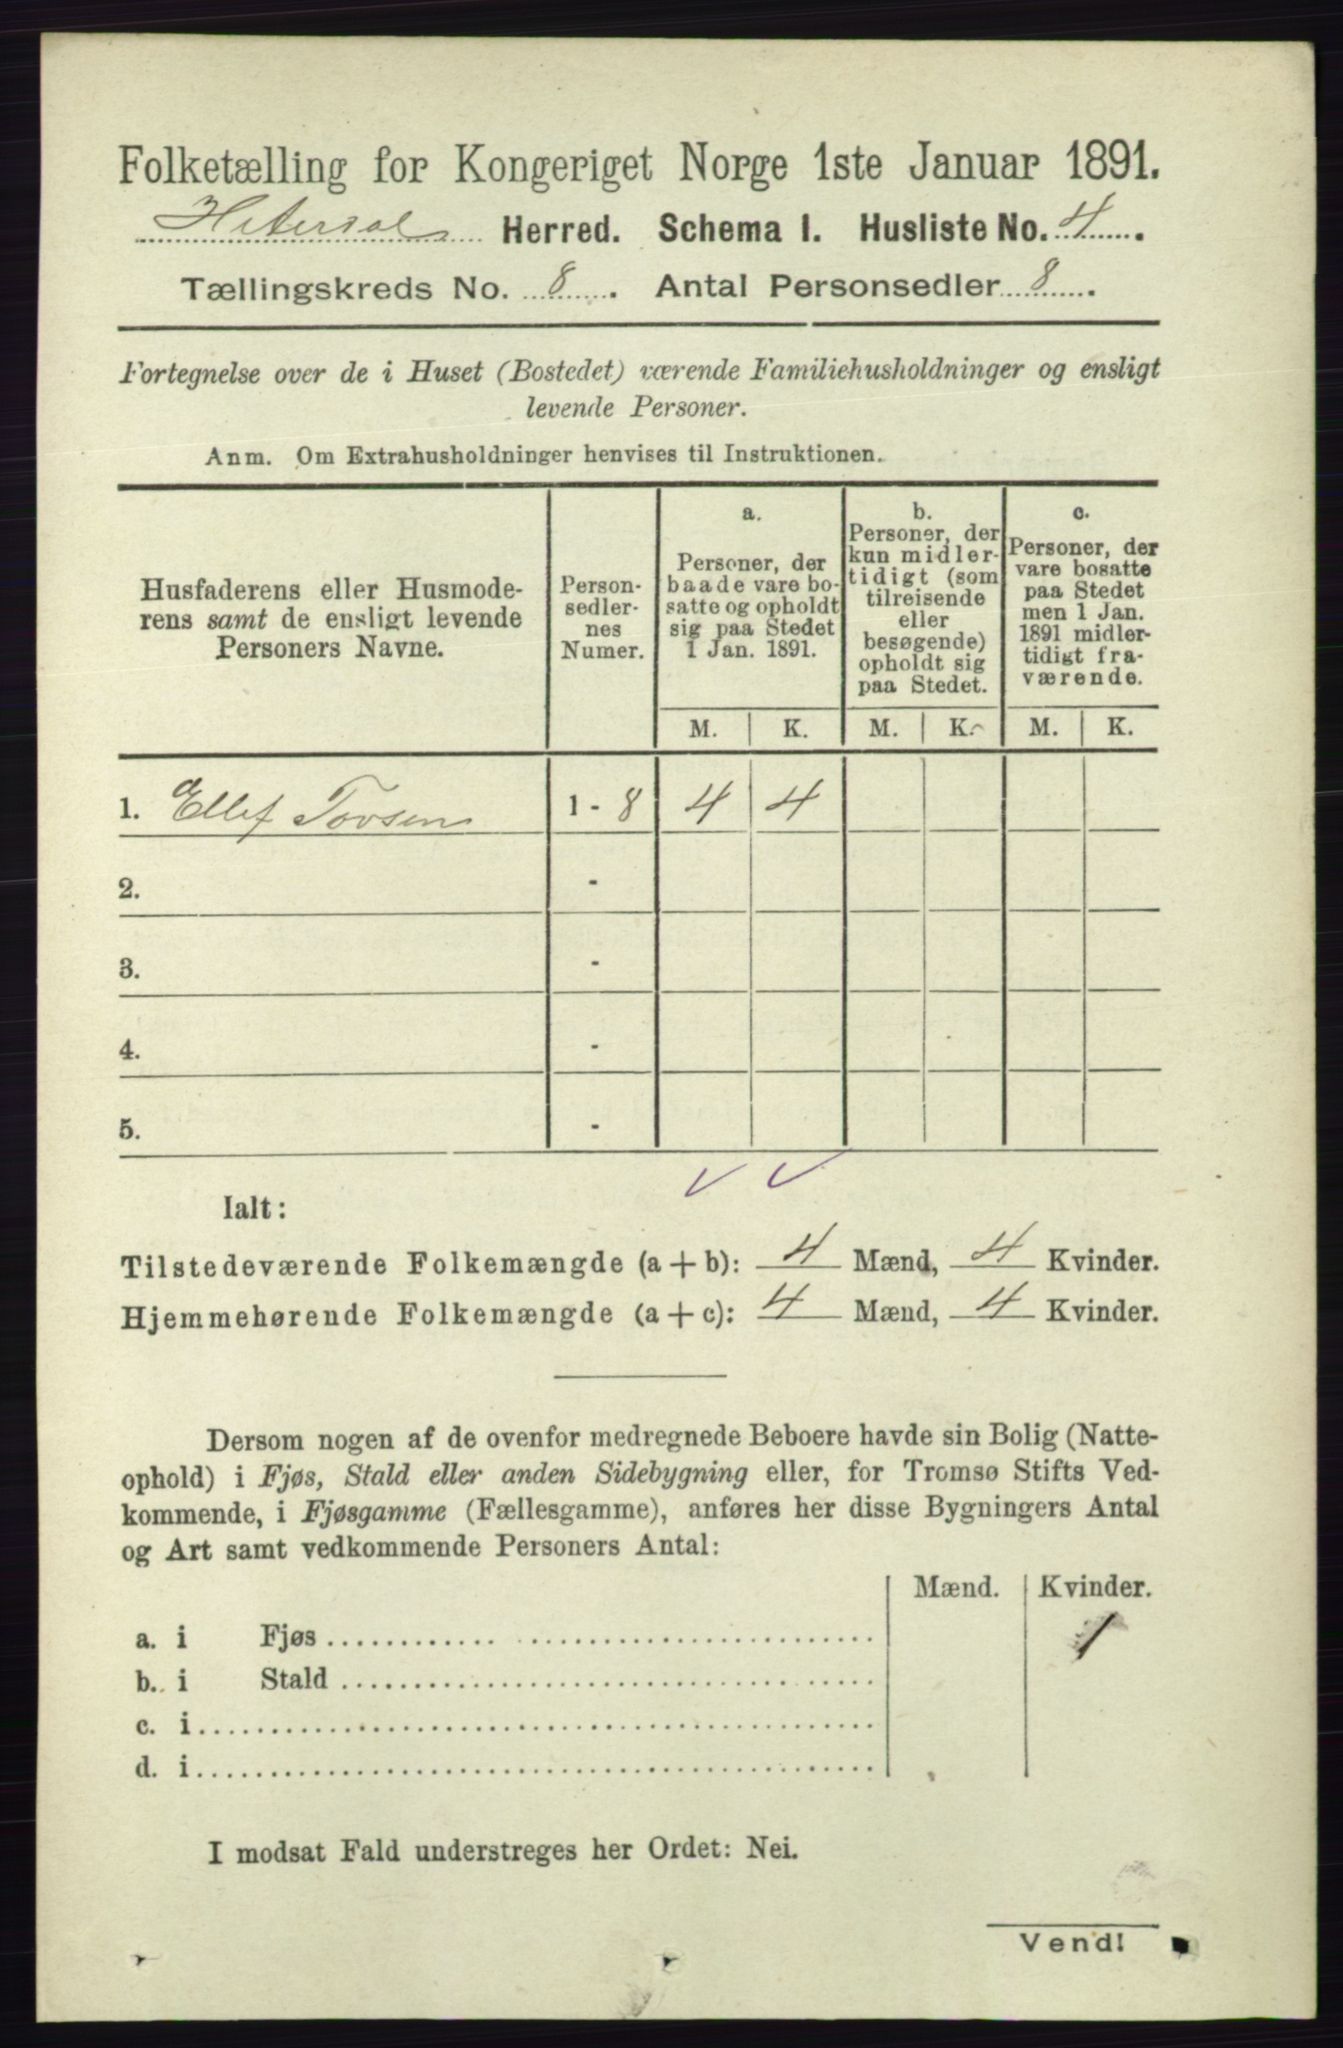 Folketælling for Kongeriget Norge 1ste Januar 1891.
Hitterdal Herred. Schema I. Husliste No. 4.
Tællingskreds No. 8. Antal Personsedler 8.
Fortegnelse over de i Huset (Bostedet) værende Familiehusholdninger og ensligt
levende Personer.
Anm. Om Extrahusholdninger henvises til Instruktionen.
Husfaderens eller Husmode-
rens samt de ensligt levende
Personers Navne.
Person-
sedler-
nes
Numer.
a.
Personer, der
baade vare bo-
satte og opholdt
sig paa Stedet
1 Jan. 1891.
b.
Personer, der
kun midler-
tidigt (som
tilreisende
eller
besøgende)
opholdt sig
paa Stedet.
c.
Personer, der
vare bosatte
paa Stedet
men 1 Jan.
1891 midler-
tidigt fra-
værende.
M. K. M. K. M. K.
1. Ellef Tovsen 1 - 8 4 4
2. -
3. -
4. -
5. -
Ialt:
Tilstedeværende Folkemængde (a + b): 4 Mænd, 4 Kvinder.
Hjemmehørende Folkemængde (a + c): 4 Mænd, 4 Kvinder.
Dersom nogen af de ovenfor medregnede Beboere havde sin Bolig (Natte-
ophold) i Fjøs, Stald eller anden Sidebygning eller, for Tromsø Stifts Ved-
kommende, i Fjøsgamme (Fællesgamme), anføres her disse Bygningers Antal
og Art samt vedkommende Personers Antal:
Mænd. Kvinder.
a. i Fjøs 1
b. i Stald
c. i
d. i
I modsat Fald understreges her Ordet: Nei.
Vend!